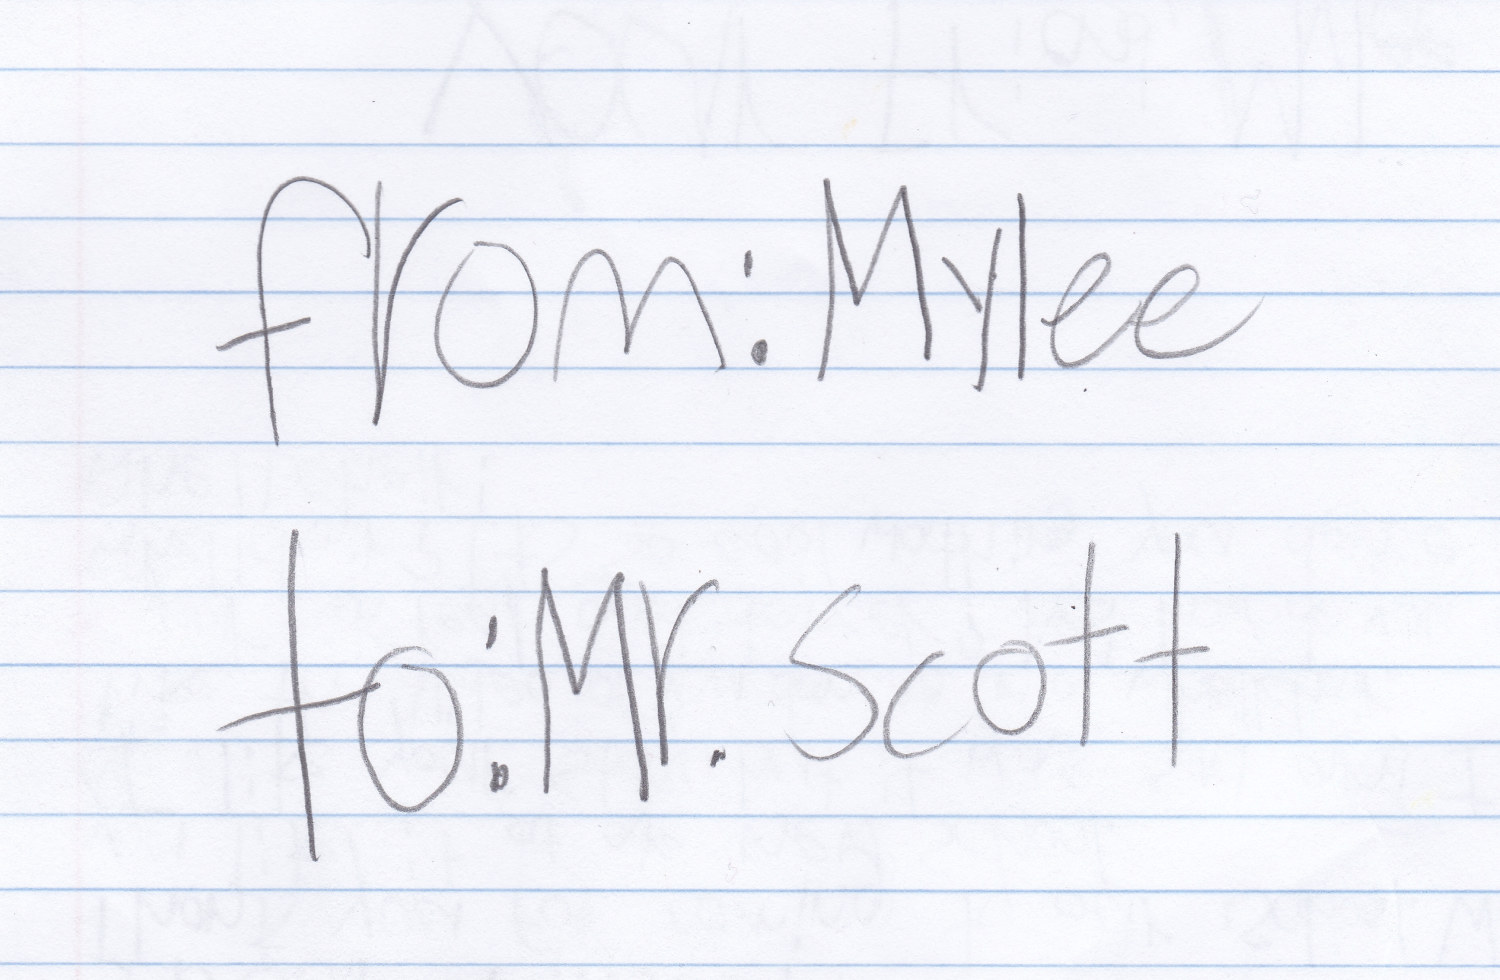 from: Mylee
to: Mr. Scott